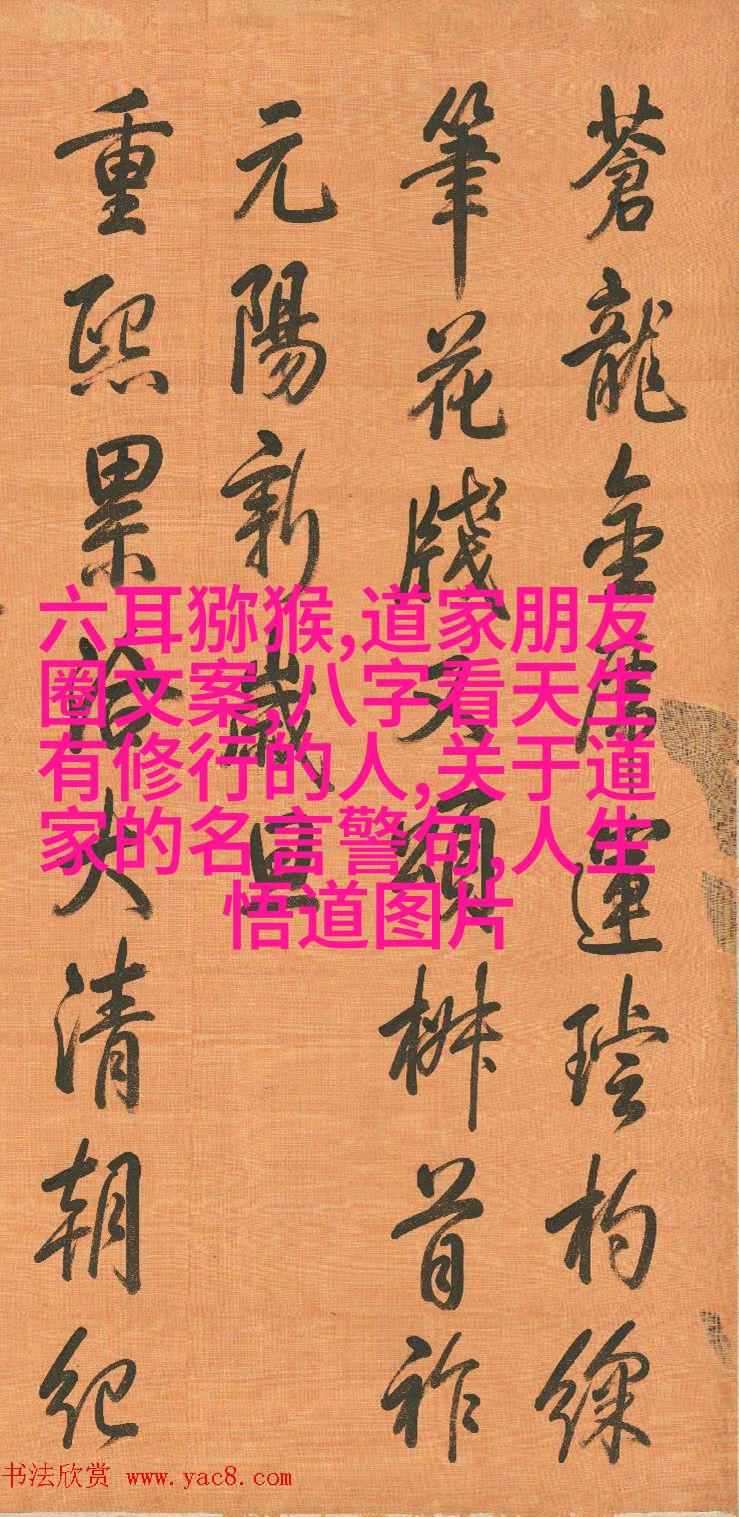 蒼龍金運杓
筆花牋頌椒首祚
元陽新歲旦
重熙累洽大清朝紀
六耳猕猴,道家朋友
圈文案,八字看天生
有修行的人,关于道
家的名言警句,人生
悟道图片
书法欣赏 www.yac8.com